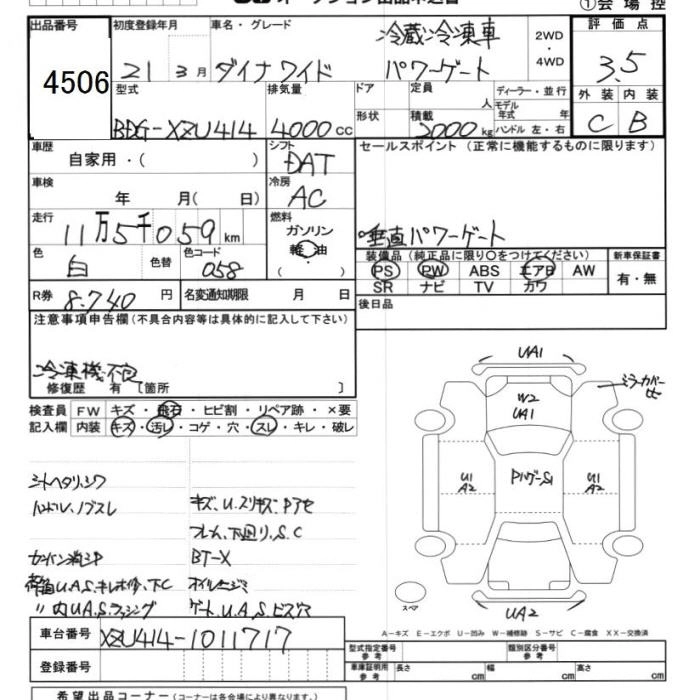 ①会場控
出品番号 初度登録年月 車名・グレード 2WD ・ 4WD 評価点
4506
21 3月 ダイナワイド 冷蔵冷凍車 パワーゲート
3.5
外装 内装
C B
型式 排気量 ドア 定員 人 ディーラー・並行
形状 積載 モデル年式 年
BDG-XZU414 4000cc 2000kg ハンドル 左・右
車歴 自家用・( ) シフト DAT
セールスポイント(正常に機能するものに限ります)
車検 年 月( 日) 冷房 AC
走行 11万5千059km
燃料 ガソリン 軽油 ( ・ )
垂直パワーゲート
色 白 色替 色コード 058
装備品(純正品に限り○をつけてください) 新車保証書
PS PW ABS エアB AW 有・無
SR ナビ TV カワ
R券 8,740円 名変通知期限 月 日
後日品
注意事項申告欄(不具合内容等は具体的に記入して下さい)
冷凍機
修復歴 有〔箇所 〕
検査員 FW キズ・飛石・ヒビ割・リペア跡・×要
記入欄 内装 キズ・汚レ・コゲ・穴・スレ・キレ・破レ
シートヘタリ、シワ
ハンドル、ノブスレ キズ、U、スリキズ
下回り、S、C
BT-X
U.A.S. 下C
〃 内U.A.S. ゲート、U.A.S. ビス穴
UA1
W2
UA1
ミラーカバー
U1
A2
U1
A2
スペア
UA2
A－キズ E－エクボ U－凹み W－補修跡 S－サビ C－腐食 XX－交換済
車台番号 XZU414-1011717
登録番号
型式指定番号 参考 類別区分番号 参考
車庫証明用 参考 長さ cm 幅 cm 高さ cm
希望出品コーナー(コーナーは各会場により異なります。)